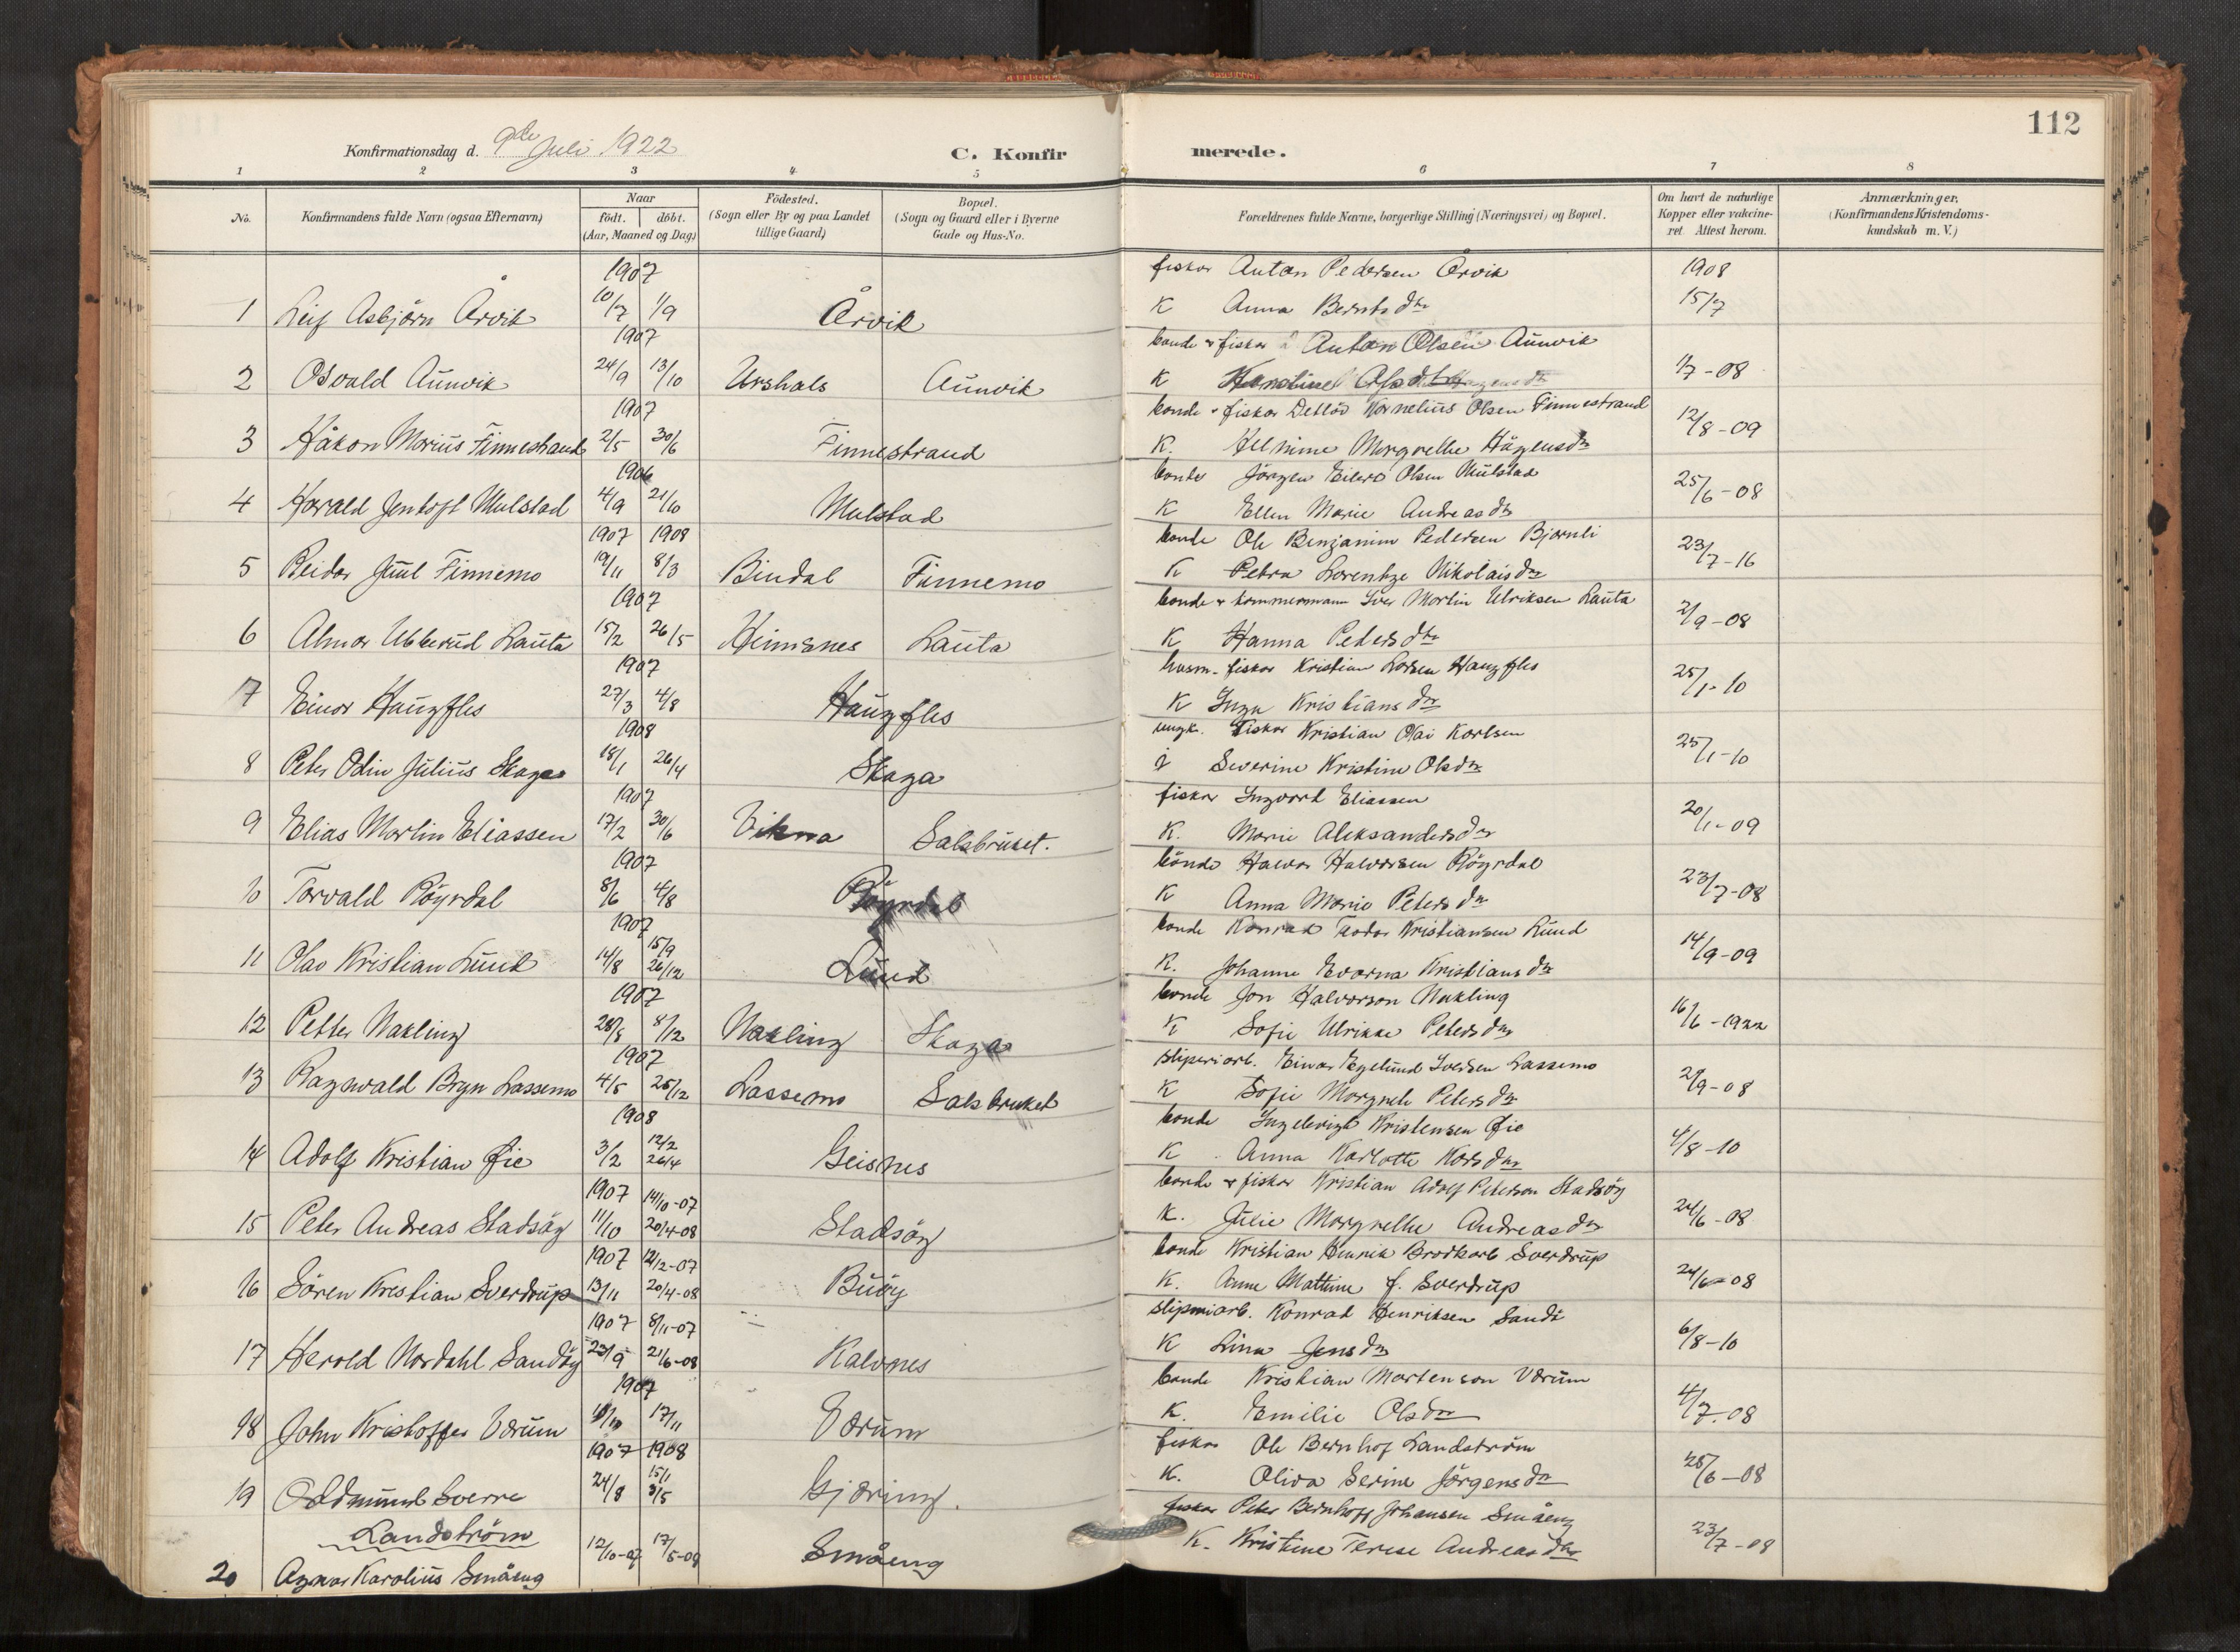 112
Konfirmationsdag d. 9de Juli 1922
C. Konfir merede.
1 2 3 4 5 6 7 8
No.
Konfirmandens fulde Navn (ogsaa Efternavn)
Naar
födt. döbt.
(Aar, Maaned og Dag)
Födested.
(Sogn eller By og paa Landet
tillige Gaard)
Bopæl.
(Sogn og Gaard eller i Byerne
Gade og Hus-No.
Forældrenes fulde Navne, borgerlige Stilling (Næringsvei) og Bopæl.
Om havt de naturlige
Kopper eller vakcine-
ret Attest herom.
Anmærkninger,
(Konfirmandens Kristendoms-
kundskab m. V.)
1907 fisker Anton Pedersen Årvik 1908
1 Leif Asbjörn Årvik 10/7 1/9 Årvik K Anna Berntsdtr 15/7
1907 bonde & fisker Anton Olsen Aunvik
2 Osvald Aunvik 24/9 13/10 Urshals Aunvik K 1/7-08
1907 bonde & fisker Detlov Kornelius Olsen Finnestrand
3 Håkon Marius Finnestrand 2/5 30/6 Finnestrand K. Helmine Margrethe Hågensdtr 12/8-09
1906 bonde Jörgen Eilert Olsen Mulstad
4 Harald Jentoft Mulstad 4/9 21/10 Mulstad K Ellen Marie Andreasdtr 25/6-08
1907 1908 bonde Ole Benjamin Pedersen Bjørnli
5 Reidar Juul Finnemo 19/11 8/3 Bindal Finnemo K Petra Lorentze Nikolaisdtr 23/7-16
1907 bonde & tømmermann Iver Martin Ulriksen Lauta
6 Almar Ubberud Lauta 15/2 26/5 Heimsnes Lauta K Hanna Petersdtr 2/9-08
1907 husm. fisker Kristian Larsen Haugfles
7 Einar Haugfles 27/3 4/8 Haugfles K Inga Kristiansdtr 25/1-10
1908 ungk. Fisker Kristian Olai Karlsen
8 Peter Odin Julius Skaga 18/1 26/4 Skaga Severine Kristine Olsdtr 25/1-10
1907 fisker Ingvart Eliassen
9 Elias Martin Eliassen 17/2 30/6 Vikna Salsbruket. K. Marie Aleksandersdtr 20/1-09
1907 bonde Halvor Halvorsen Röyrdal
10 Torvald Röyrdal 8/6 4/8 Röyrdal K Anna Marie Petersdtr 23/7-08
1907 bonde Konrad Teodor Kristiansen Lund
11 Olav Kristian Lund 14/8 15/9 26/12 Lund K. Johanne Evarna Kristiansdtr 14/9-09
1907 bonde Jon Halvorson Nakling
12 Petter Nakling 28/8 8/12 Nakling Skaga K Sofie Ulrikke Petersdtr 16/6-1922
1907 sliperiarb. Einar Egelund Iversen Lassemo
13 Ragnvald Bryn Lassemo 4/5 25/12 Lassemo Salsbruket K Sofie Margrete Petersdtr 2/9-08
1908 bonde Ingebrigt Kristensen Øie
14 Adolf Kristian Øie 3/2 12/2 26/4 Geisnes K Anna Karlotte 4/8-10
1907 14/10-07 bonde & fisker Kristian Adolf Peterson Stadsöy
15 Peter Andreas Stadsöy 11/10 20/4-08 Stadsöy K. Julie Margrethe Andreasdtr 24/6-08
1907 12/12-07 bonde Kristian Henrik Brodkorb Sverdrup
16 Sören Kristian Sverdrup 13/11 20/4-08 Buöy K. Anne Mattine f. Sverdrup 24/6-08
1907 8/11-07 sliperiarb. Konrad Henriksen Sandö
17 Herold Nordahl Sandöy 23/9 21/6-08 Kalvnes K Lina Jensdtr 6/8-10
1907 bonde Kristian Mortenson Varum
18 John Kristoffer Varum 17/11 Varum K. Emilie Olsdtr 4/7-08
1907 1908 fisker Ole Bernhof Landström
19 Oddmund Sverre 24/8 15/1 3/5 Gjæring. K. Oliva Serine Jörgensdtr 25/6-08
Landström fisker Peter Bernhoff Johansen Småeng
20 Agnar Karolius Småeng 12/10-07 17/5-08 Småeng K. Kristine Terese Andreasdtr 23/7-08